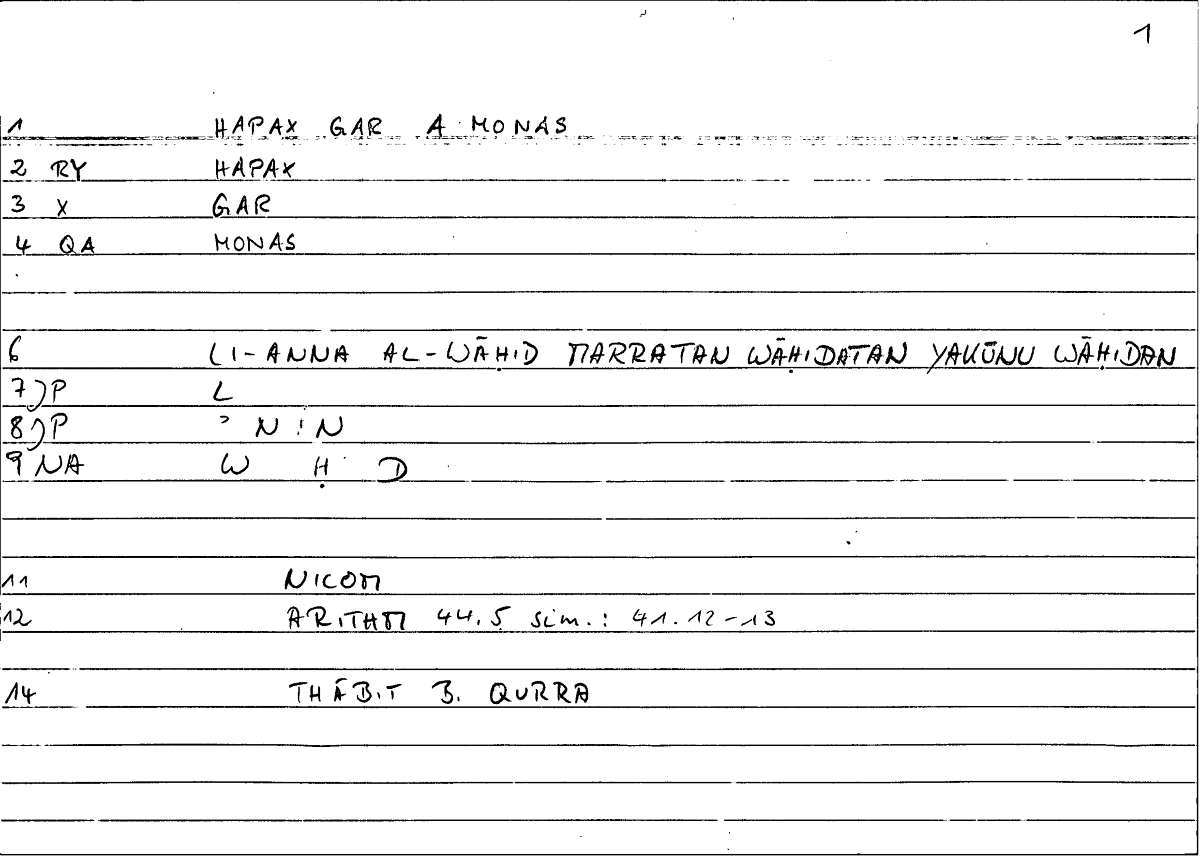 1
1 HAPAX GAR A MONAS
2 RY HAPAX
3 X GAR
4 QA MONAS
6 LI-ANNA AL-WĀḤID MARRATAN WĀḤIDATAN YAKŪNU WĀḤIDAN
7 JP L
8 JP ʾ N : N
9 NA W Ḥ D
11 NICOM
12 ARITHM 44.5 sim.: 41.12-13
14 THĀBIT B. QURRA